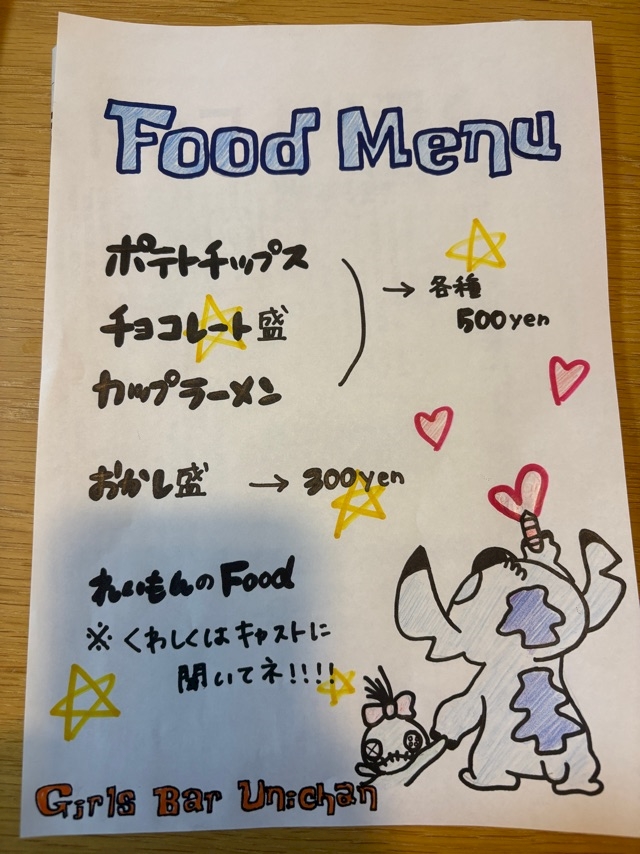 Food Menu
ポテトチップス
チョコレート盛
カップラーメン
→ 各種
500yen
おかし盛 → 300yen
れいもんのFood
※くわしくはキャストに
聞いてネ!!!!
Girls Bar Unichan